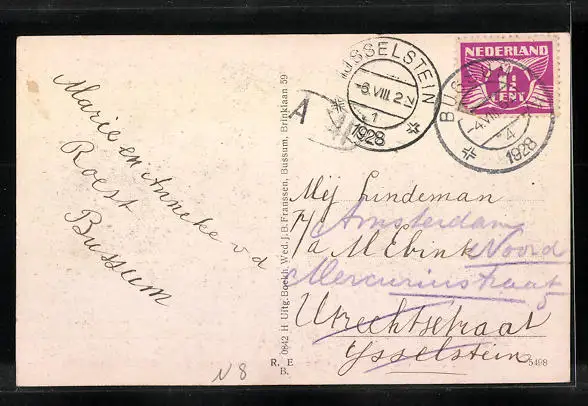 Marie en Anneke v d
Roest
Bussum
0842 H Uitg. Boekh. Wed. J.B. Franssen, Bussum, Brinklaan 59
IJSSELSTEIN
-6.VIII. 2-
1
1928
A
NEDERLAND
1½
CENT
BUSSUM
-4.VIII
4
1928
Mej Lindeman
Amsterdam
p/a M Ebink Noord
Mercuriusstraat
5
Utrechtsestraat
Ysselstein
R. E
B.
5498
N8